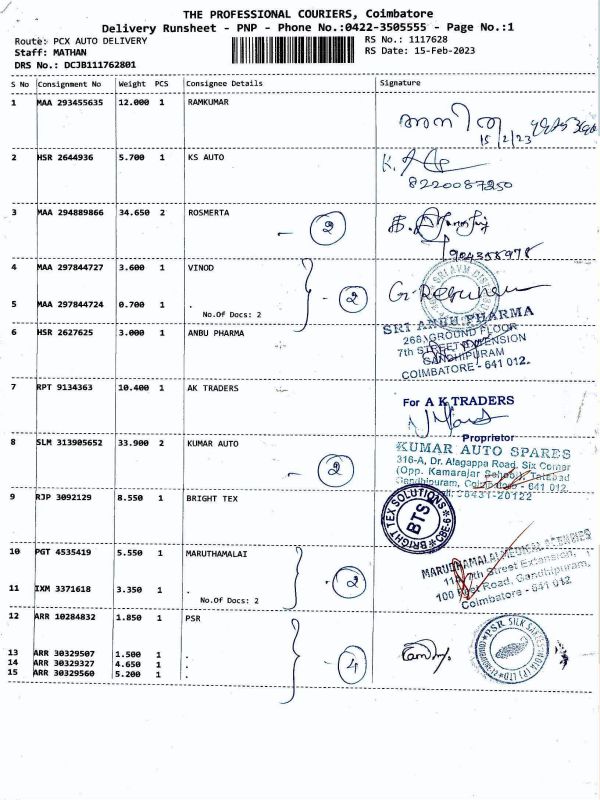 THE PROFESSIONAL COURIERS, Coimbatore
Delivery Runsheet - PNP - Phone No.:0422-3505555 - Page No.:1
Route: PCX AUTO DELIVERY
RS No.: 1117628
Staff: MATHAN
RS Date: 15-Feb-2023
DRS No.: DCJB111762801
S No Consignment No Weight PCS Consignee Details Signature
1 MAA 293455635 12.000 1 RAMKUMAR
15/2/23
2 HSR 2644936 5.700 1 KS AUTO
8220087250
3 MAA 294889866 34.650 2 ROSMERTA
- 2
4 MAA 297844727 3.600 1 VINOD
- 2
5 MAA 297844724 0.700 1 .
No.Of Docs: 2
6 HSR 2627625 3.000 1 ANBU PHARMA
SRI ANBU PHARMA
268, GROUND FLOOR
7th STREET EXTENSION
GANDHIPURAM
COIMBATORE - 641 012.
7 RPT 9134363 10.400 1 AK TRADERS
For A K TRADERS
Proprietor
8 SLM 313905652 33.900 2 KUMAR AUTO
- 2
KUMAR AUTO SPARES
316-A, Dr. Alagappa Road, Six Corner
(Opp. Kamarajar School), Tatabad
Gandhipuram, Coimbatore - 641 012.
9 RJP 3092129 8.550 1 BRIGHT TEX
BRIGHT TEX SOLUTIONS
BTS
CBE-6
10 PGT 4535419 5.550 1 MARUTHAMALAI
- 2
11 IXM 3371618 3.350 1 .
No.Of Docs: 2
MARUDHAMALAI MEDICAL AGENCIES
7th Street Extension,
100 Feet Road, Gandhipuram,
Coimbatore - 641 012
12 ARR 10284832 1.850 1 PSR
13 ARR 30329507 1.500 1 .
14 ARR 30329327 4.650 1 .
15 ARR 30329560 5.200 1 .
- 4